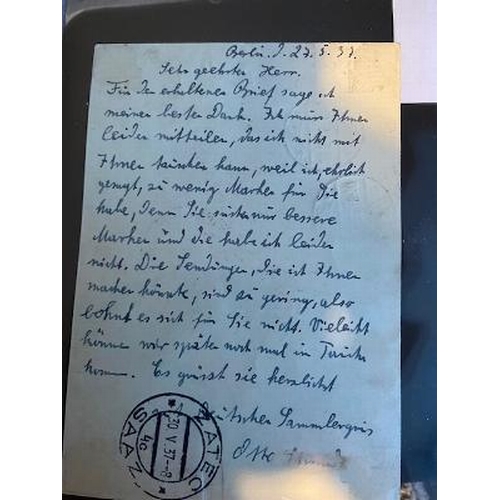 Berlin. d. 27.5.37.
Sehr geehrter Herr.
Für den erhaltenen Brief sage ich
meinen besten Dank. Ich muss Ihnen
leider mitteilen, das ich nicht mit
Ihnen tauschen kann, weil ich, ehrlich
gesagt, zu wenig Marken für Sie
habe, denn Sie suchen nur bessere
Marken und die habe ich leider
nicht. Die Sendungen, die ich Ihnen
machen könnte, sind zu gering, also
lohnt es sich für Sie nicht. Vieleicht
können wir später noch mal in Tausch
komen. Es grüsst sie herzlichst
Deutschen Sammlergruss
Otto
ŽATEC
30.V.37.-8
4c
SAAZ